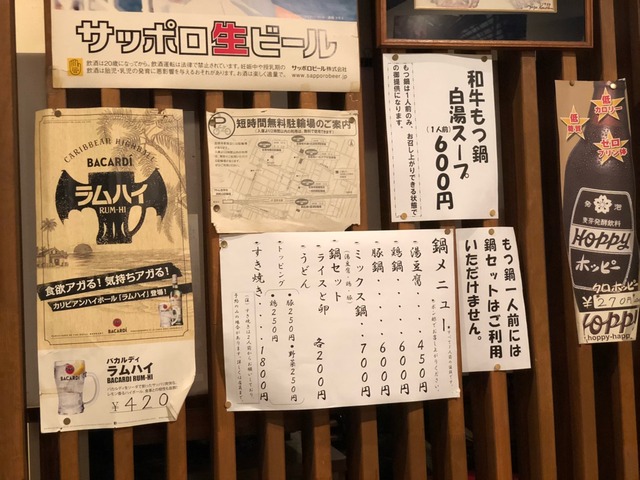 サッポロ生ビール
飲酒は20歳になってから。飲酒運転は法律で禁止されています。妊娠中や授乳期の
飲酒は胎児・乳児の発育に悪影響を与えるおそれがあります。お酒は楽しく適量で。
サッポロビール株式会社
www.sapporobeer.jp
CARIBBEAN HIGHBALL
BACARDÍ
ラムハイ
RUM-HI
食欲アガる！気持ちアガる！
カリビアンハイボール「ラムハイ」登場！
BACARDÍ
バカルディ
ラムハイ
BACARDÍ RUM-HI
¥420
短時間無料駐輪場のご案内
和牛もつ鍋
白湯スープ
(1人前)600円
もつ鍋は1人前のみ、
お召し上がりできる状態で
の御提供になります。
鍋メニュー
・湯豆腐 450円
・鶏鍋 600円
・豚鍋 600円
・ミックス鍋 700円
(湯豆腐・鶏・豚)
鍋セット
・ライスと卵 各200円
・うどん
トッピング
・豚250円・野菜250円
・鶏250円
・すき焼き 1800円
もつ鍋一人前には
鍋セットはご利用
いただけません。
低カロリー
低糖質
ゼロプリン体
発泡
麦芽発酵飲料
HOPPY
ホッピー
¥270円
HOPPY
hoppy-happy